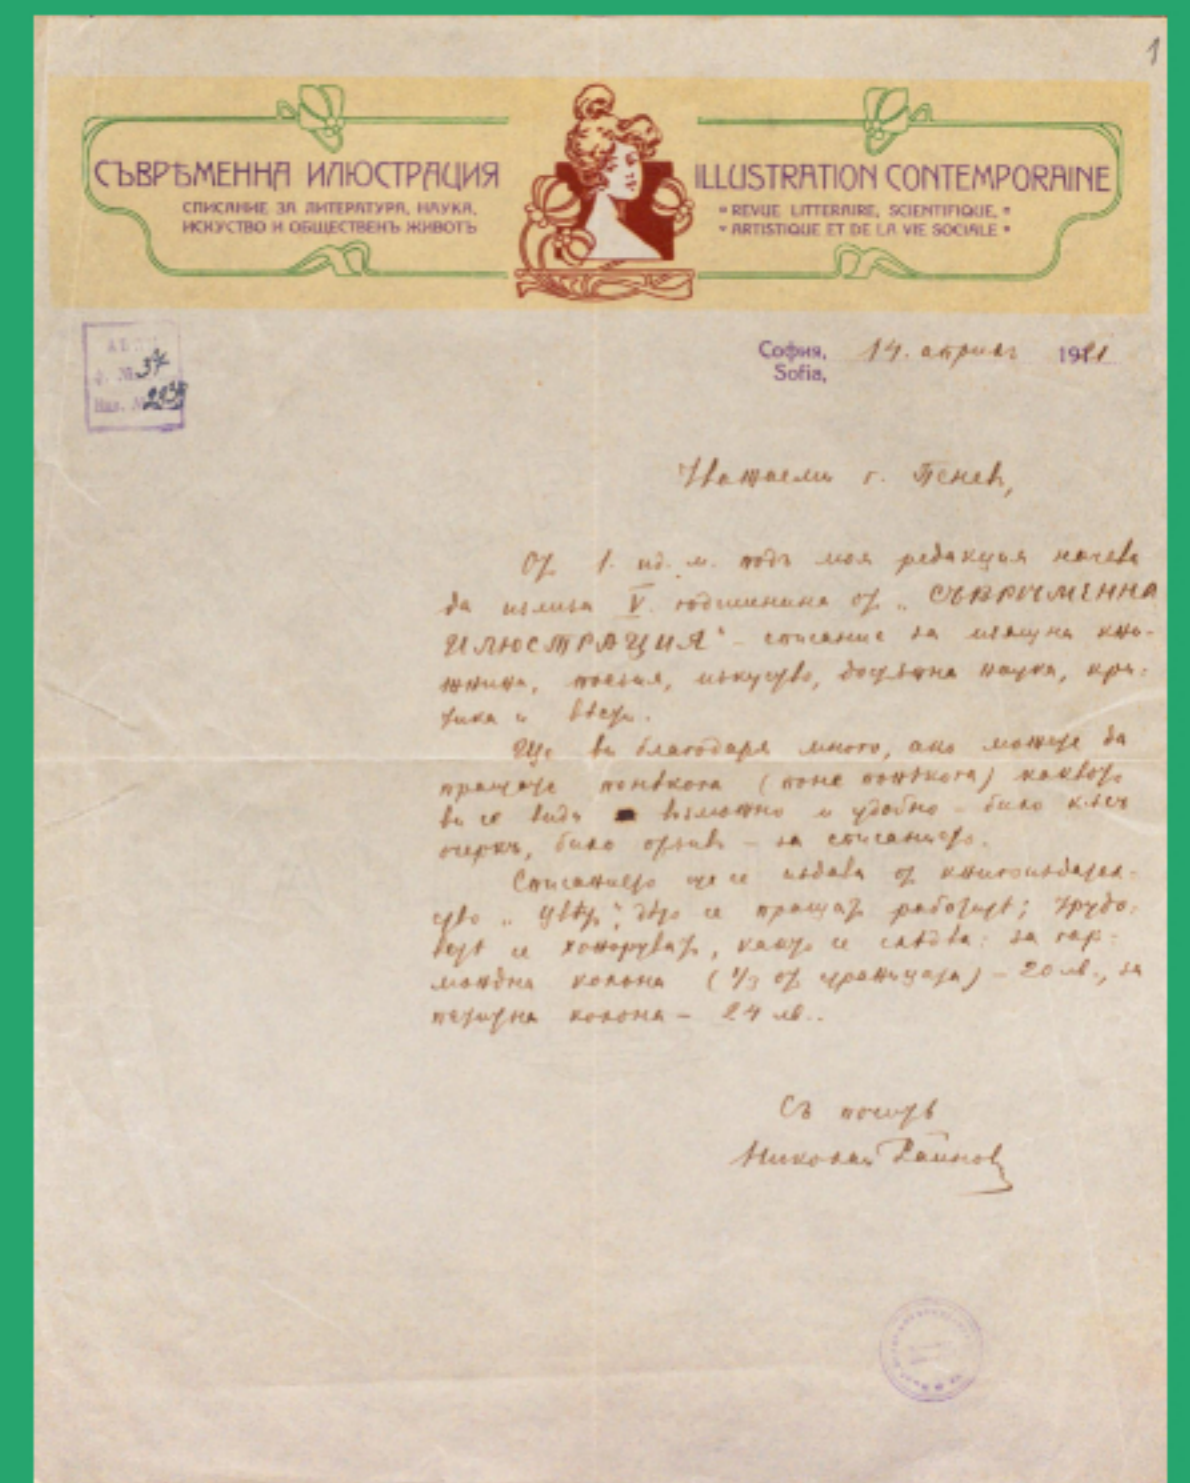 1
СЪВРѢМЕННА ИЛЮСТРАЦИЯ
СПИСАНИЕ ЗА ЛИТЕРАТУРА, НАУКА,
ИСКУСТВО И ОБЩЕСТВЕНЪ ЖИВОТЪ
ILLUSTRATION CONTEMPORAINE
REVUE LITTERAIRE, SCIENTIFIQUE,
ARTISTIQUE ET DE LA VIE SOCIALE
ф. № 37
Инв. №
София, 14. априлъ 1921
Sofia,
Уважаеми г. Пеневъ,
От 1. ид. м. подъ моя редакция начева
да излиза V. годишнина от „СЪВРѢМЕННА
ИЛЮСТРАЦИЯ" – списание за изящна кни-
жнина, поезия, изкуство, достѫпна наука, кри-
тика и вѣсти.
Ще ви благодаря много, ако можете да
пращате понѣкога (поне понѣкога) каквото
ви се види възможно и удобно – било кѫсъ
очеркъ, било отзивъ – за списанието.
Списанието ще се издава от книгоиздател-
ство „Цвѣтъ", дѣто се пращат работитѣ; трудо-
ветѣ се хоноруват, както се слѣдва: за гар-
мондна колона (1/3 от страницата) – 20 лв., за
петитна колона – 24 лв..
Съ почить
Николай Райновъ